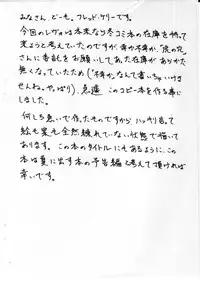 みなさん、どーも。フレッド・ケリーです。
今回のレヴォは本来なら冬コミ本の在庫を持って
来ようと考えていたのですが、幸か不幸か、「虎の穴」
さんに委託をお願いしてあった在庫が、ありがた
無くなっていたため(「不幸か」なんて言っちゃいけま
せんね。やっぱり)、急遽 このコピー本を作る事に
しました。
何しろ急いで作ったものですから、ハッキリ言って
絵も案も全然練れていない状態で描いて
おります。この本のタイトルにもあるように、この
本は夏に出す本の予告編と考えて頂ければ
幸いです。